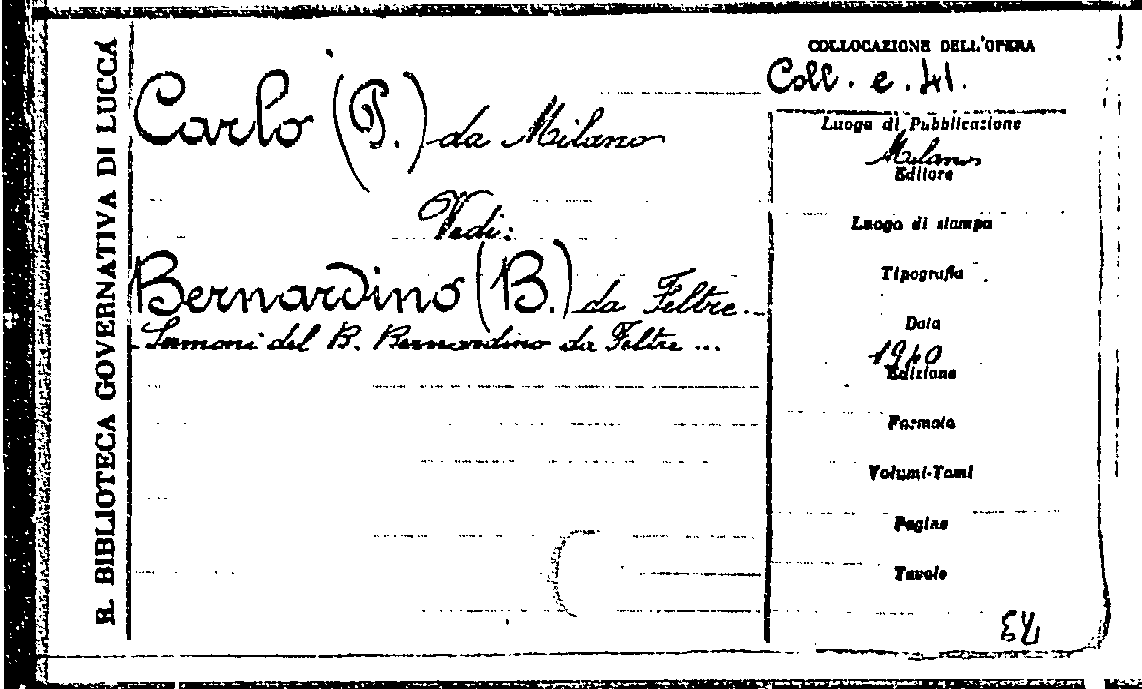 R. BIBLIOTECA GOVERNATIVA DI LUCCA
Carlo (P.) da Milano
Vedi:
Bernardino (B.) da Feltre
Sermoni del B. Bernardino da Feltre ...
COLLOCAZIONE DELL'OPERA
Coll. e. 41.
Luogo di Pubblicazione
Milano
Editore
Luogo di stampa
Tipografia
Data
1940
Edizione
Formato
Volumi-Tomi
Pagine
Tavole